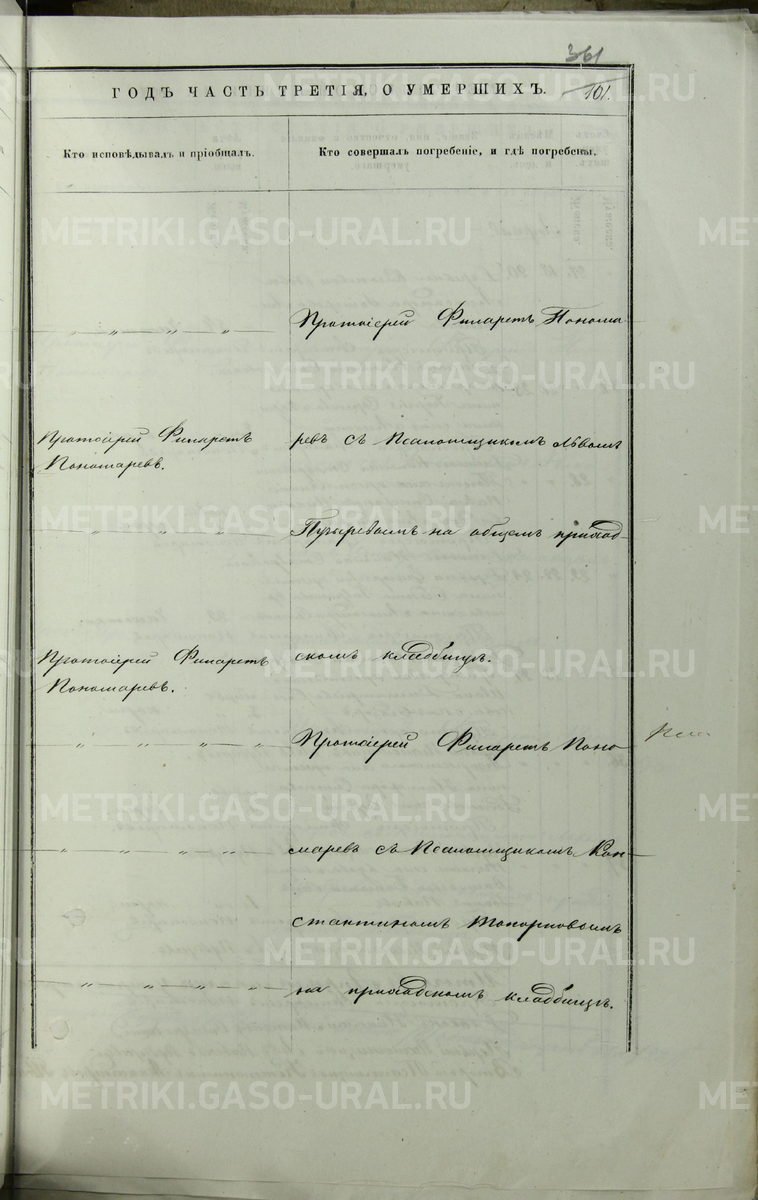 361
ГОДЪ ЧАСТЬ ТРЕТІЯ, О УМЕРШИХЪ.
101.
Кто исповѣдывалъ и пріобщалъ.
Кто совершалъ погребеніе, и гдѣ погребены.
— „ — „ — „ — „ —
Протоіерей Филаретъ Понома
Протоіерей Филаретъ
Пономаревъ.
ревъ съ Псаломщикомъ Львомъ
— „ — „ — „ — „ —
на общемъ приход-
Протоіерей Филаретъ
Пономаревъ.
скомъ кладбищѣ.
— „ — „ — „ — „
Протоіерей Филаретъ Поно-
— „ — „ — „ — „ —
маревъ съ Псаломщикомъ Кон-
стантиномъ Топорковымъ
— „ — „ — „ — „ —
на приходскомъ кладбищѣ.
METRIKI.GASO-URAL.RU